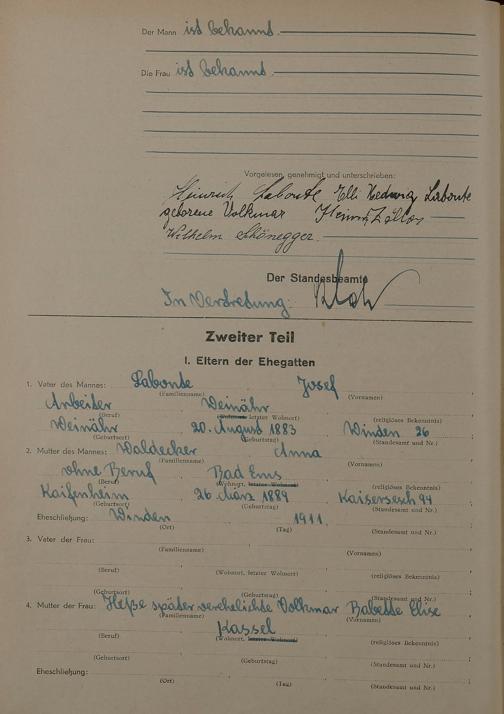 Der Mann ist bekannt.
Die Frau ist bekannt.
Vorgelesen, genehmigt und unterschrieben:
Heinrich Labonte Elli Hedwig Labonte
geborene Volkmar Heinrich
Wilhelm Schönegger.
Der Standesbeamte
In Vertretung:
Zweiter Teil
I. Eltern der Ehegatten
1. Vater des Mannes: Labonte Josef
(Familienname) (Vornamen)
Arbeiter Weinähr
(Beruf) (Wohnort, letzter Wohnort) (religiöses Bekenntnis)
Weinähr 20. August 1883 Winden 26
(Geburtsort) (Geburtstag) (Standesamt und Nr.)
2. Mutter des Mannes: Waldecker Anna
(Familienname) (Vornamen)
ohne Beruf Bad Ems
(Beruf) (Wohnort, letzter Wohnort) (religiöses Bekenntnis)
Kaifenheim 26. März 1889 Kaisersesch 94
(Geburtsort) (Geburtstag) (Standesamt und Nr.)
Eheschließung: Winden 1911.
(Ort) (Tag) (Standesamt und Nr.)
3. Vater der Frau:
(Familienname) (Vornamen)
(Beruf) (Wohnort, letzter Wohnort) (religiöses Bekenntnis)
(Geburtsort) (Geburtstag) (Standesamt und Nr.)
4. Mutter der Frau: Heße später verehelichte Volkmar Babette Elise
(Familienname) (Vornamen)
Kassel
(Beruf) (Wohnort, letzter Wohnort) (religiöses Bekenntnis)
(Geburtsort) (Geburtstag) (Standesamt und Nr.)
Eheschließung:
(Ort) (Tag) (Standesamt und Nr.)